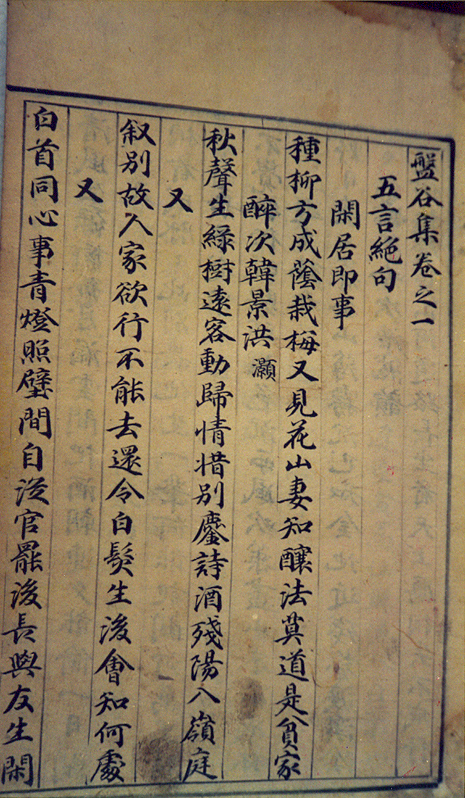 盤谷集卷之一
五言絶句
閑居即事
種柳方成蔭栽梅又見花山妻知釀法莫道是貧家
醉次韓景洪灝
秋聲生綠樹遠客動歸情惜別鏖詩酒殘陽入嶺庭
又
叙別故人家欲行不能去還令白髮生後會知何處
又
白首同心事青燈照壁間自從官罷後長與友生閑